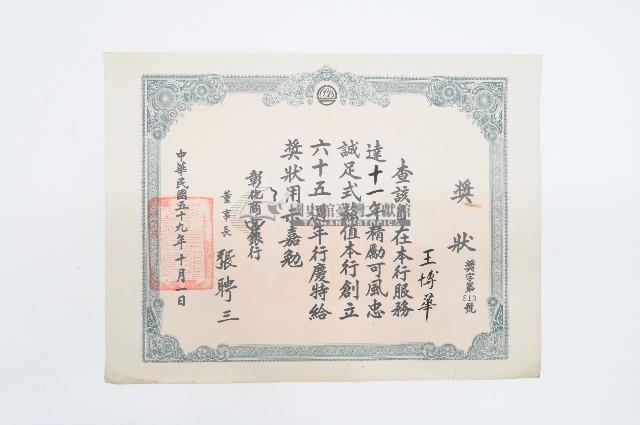 獎狀
獎字第513號
王博華
查該員在本行服務
達十一年精勵可風忠
誠足式茲值本行創立
六十五周年行慶特給
獎狀用示嘉勉
彰化商業銀行
董事長 張聘三
中華民國五十九年十月一日
國史館臺灣文獻館
TAIWAN HISTORICA